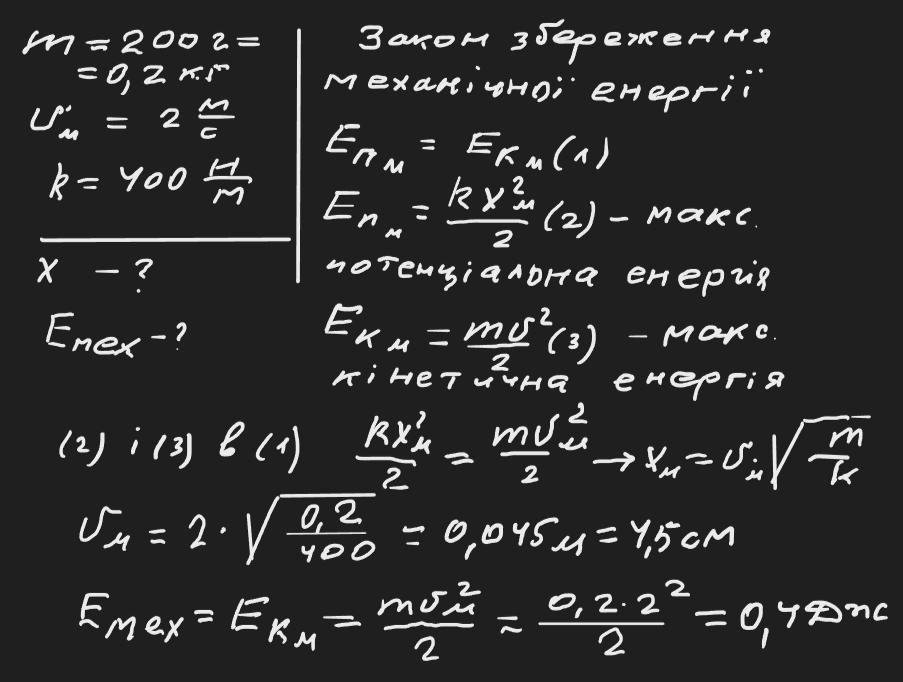 m = 200 г =
= 0,2 кг
υм = 2 м/с
k = 400 Н/м
x - ?
Eмех - ?
Закон збереження
механічної енергії
Eпм = Eкм (1)
Eпм = kxм²/2 (2) - макс.
потенціальна енергія
Eкм = mυ²/2 (3) - макс.
кінетична енергія
(2) і (3) в (1) kxм²/2 = mυм²/2 → xм = υм√(m/k)
υм = 2 · √(0,2/400) = 0,045 м = 4,5 см
Eмех = Eкм = mυм²/2 = 0,2·2²/2 = 0,4 Дж